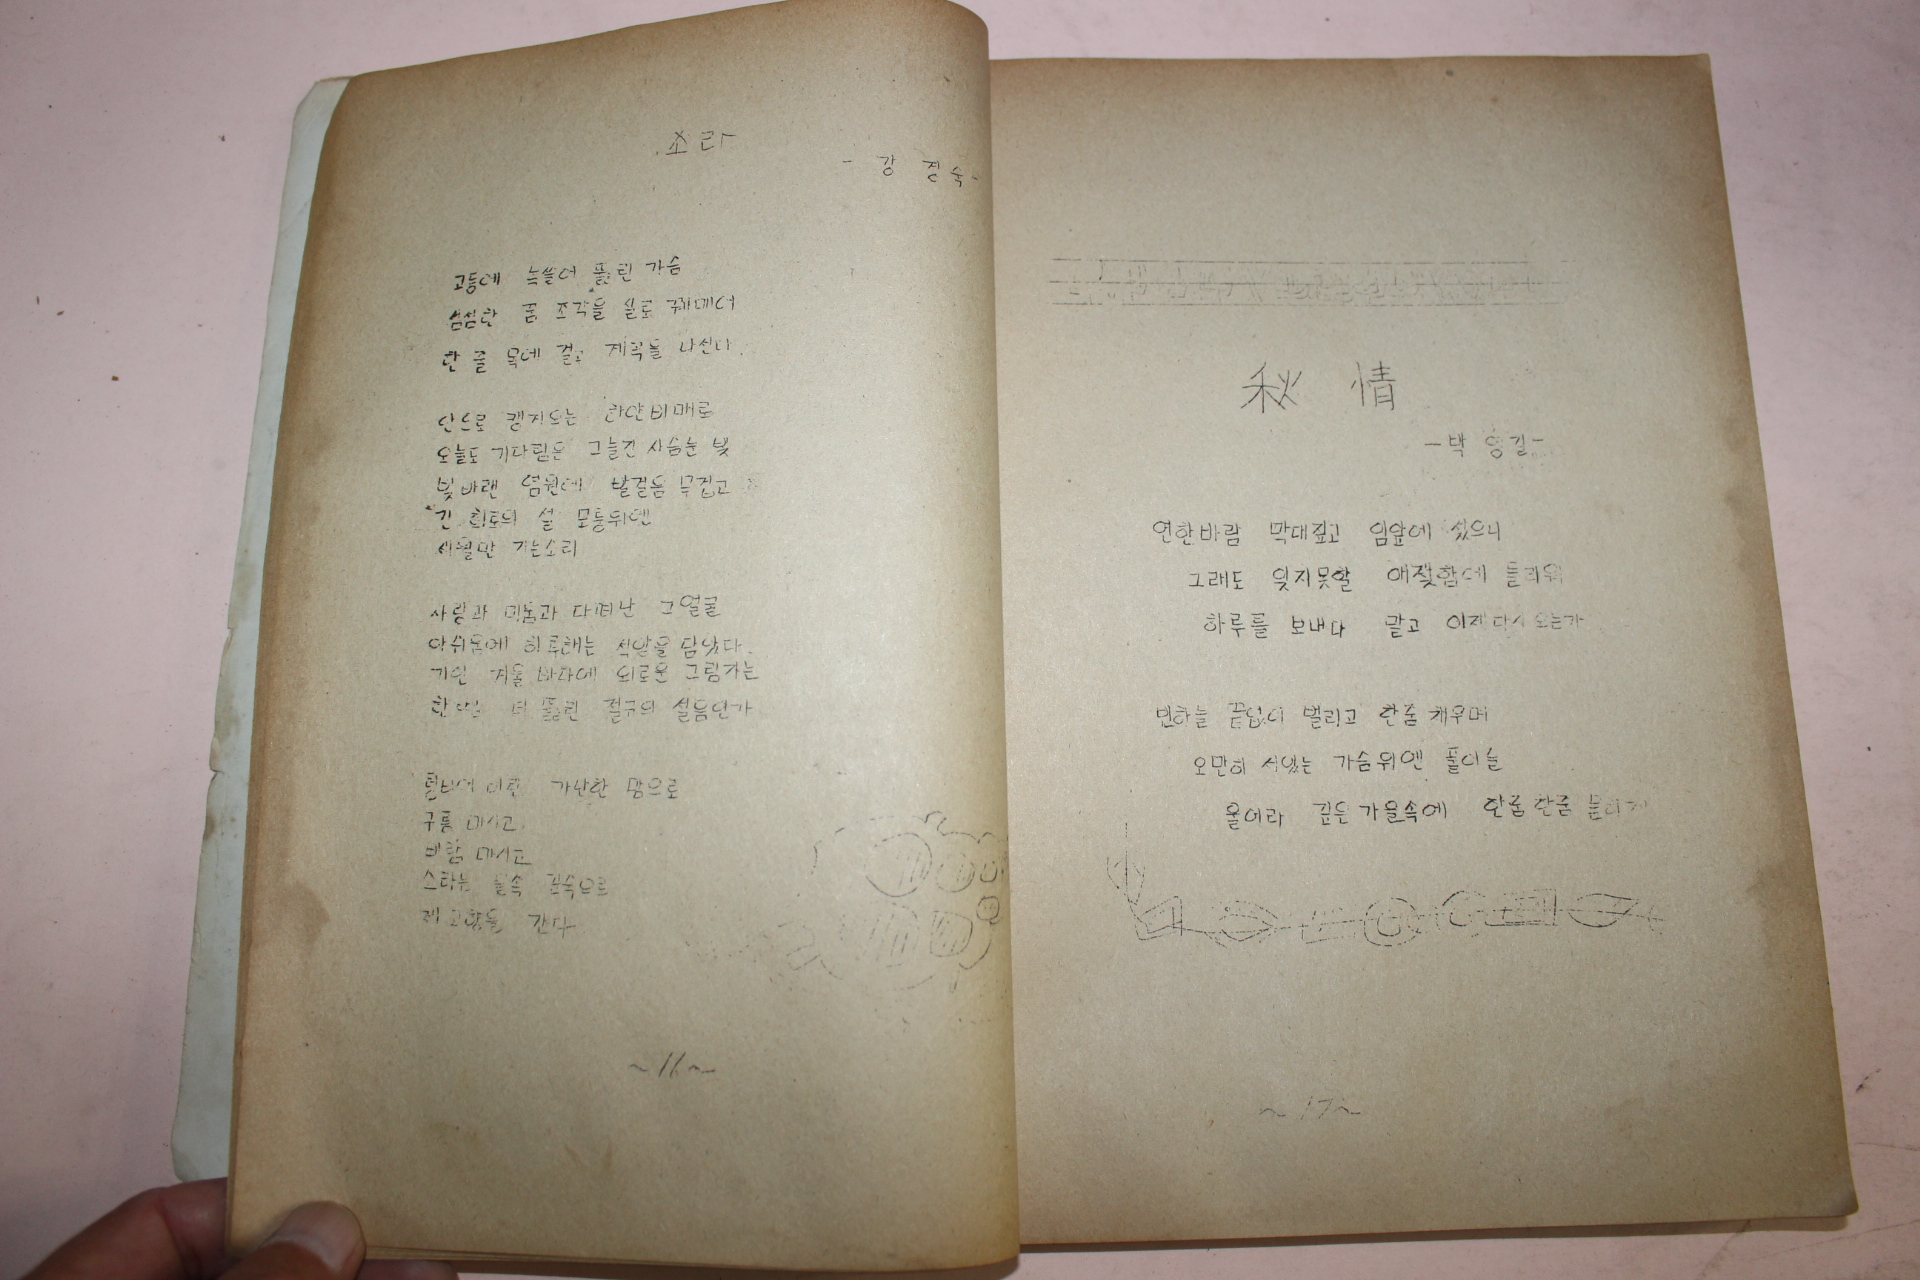 소라
- 강 정숙 -
고동에 녹쓸어 뚫린 가슴
섬섬한 꿈 조각을 실로 꿰메어
한 줄 목에 걸고 계곡을 나선다.
안으로 하얀
오늘도 기다림은 그늘진 사슴눈 빛
빛바랜 염원에 발걸음 무겁고
긴 회로의 설 모퉁위엔
세월만 가는소리
사랑과 미움과 다떠난 그얼굴
아쉬움에 하루해는 석양을 담았다.
겨울 바다에 외로운 그림자는
뚫린 절구의 설음인가
가난한 맘으로
구름 마시고,
바람 마시고
깊숙으로
제 고향을 간다
~16~
秋 情
-박 영길-
연한바람 막대짚고 임앞에 섰으니
그래도 잊지못할 애젖함에 들리워
하루를 보내다 말고 이제다시 오는가
빈하늘 끝없이 벌리고 한줌 채우며
오만히 서있는 가슴위엔 풀이슬
올이라 깊은 가을속에 한줌 한줌
~17~